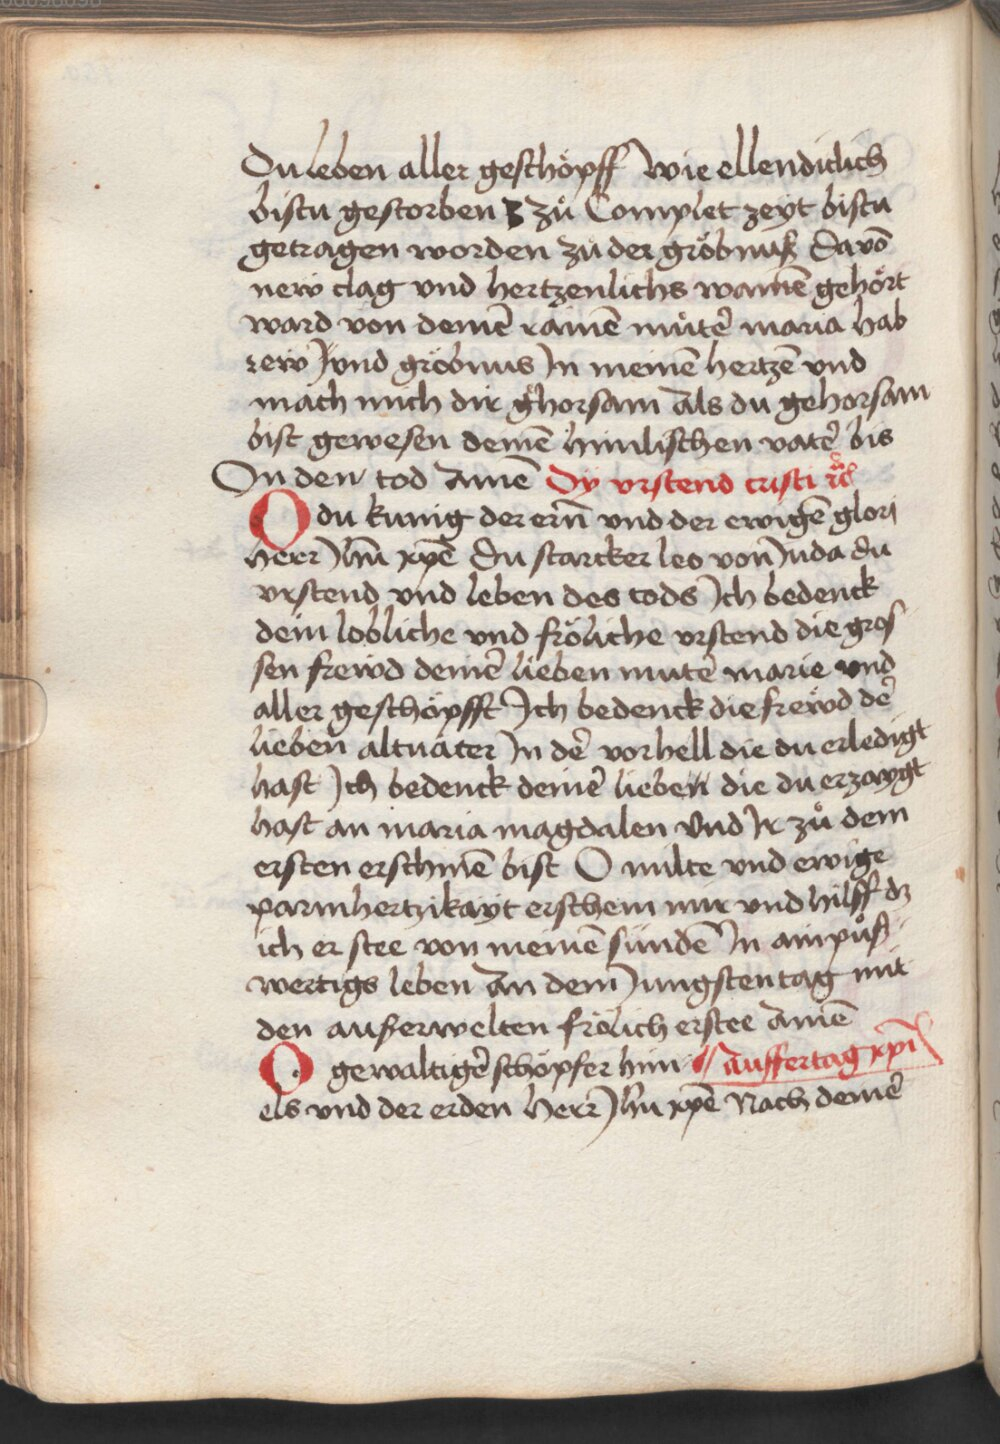 Du leben aller geschöpff Wie ellendiclich
bistu gestorben Zů Complet zeyt bistu
getragen worden zu der gröbnuß Davō
new clag vnd hertzenlichs wainē gehört
ward von deinē rainē můtˀ maria hab
rew Jvnd gröbnus Jn meinē hertzē vnd
mach mich dir ghorsam Als du gehorsam
bist gewesen deinē himlischen vatˀ bis
Jn den tod Amē Dy vrstend cristi
O du kunig der ern̄ vnd der ewigē glori
herr Jhū xpē Du starcker leo von Juda du
vrstend vnd leben des tods Jch bedenck
dein lobliche vnd fröliche vrstend die gros
sen frewd deinˀ lieben mutˀ marie vnd
aller geschöpfft Jch bedenck die frewd dˀ
lieben altuater Jn dˀ vorhell die du erledigt
hast Jch bedenck deinˀ lieben die du erzaygt
hast an maria magdalen Vnd Jr zů dem
ersten erschinē bist O milte vnd ewige
parmhertzikayt erschein mir vnd hilff dz
ich er stee von meinē sündē Jn ain půß
wertigs leben An dem Jungsten tag mit
den außerwelten frölich erstee Amē
O gewaltigˀ schöpfer him Auffertag xpi
els vnd der erden Herr Jhū xpē Nach deinˀ